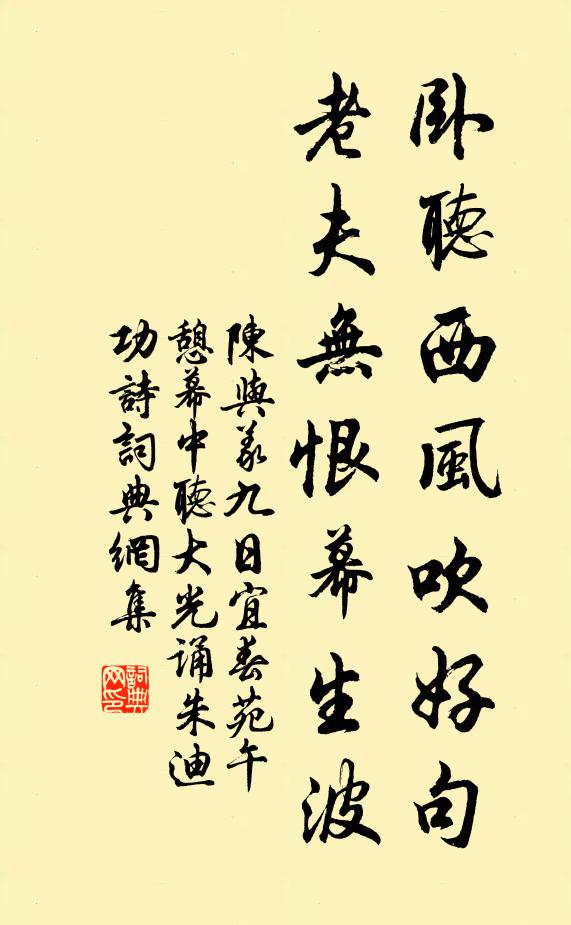 卧聽西風吹好句
老夫無恨幕生波
陳與義九日宜春苑午
憩幕中聽大光誦朱迪
功詩詞典網集
詞典網印